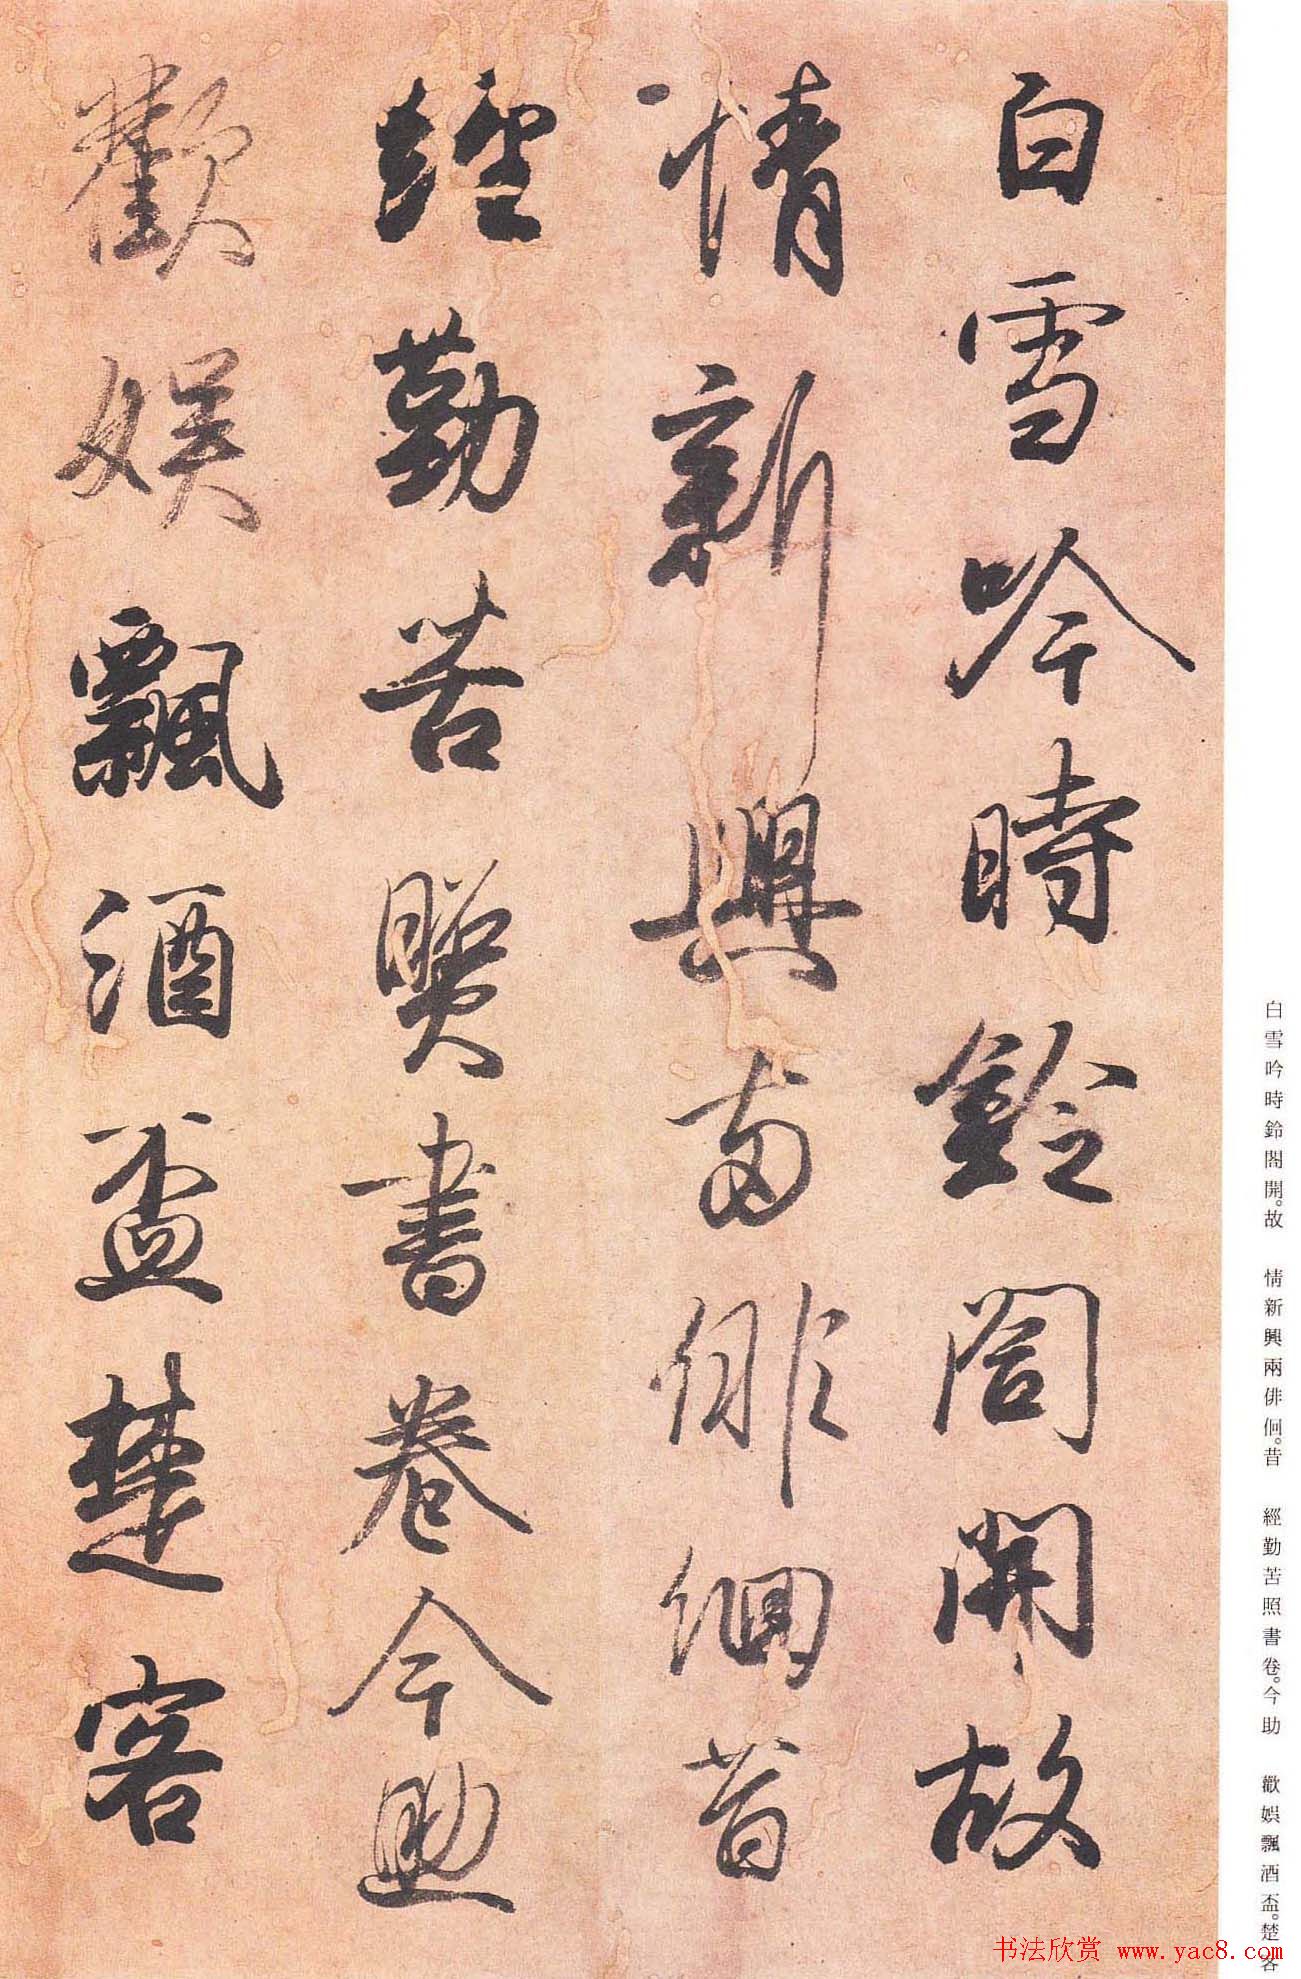 白雪吟時鈴閣開故
情新興兩徘徊昔
經勤苦照書卷今助
歡娛飄酒盃楚客
白雪吟時鈴閣開。故 情新興兩徘徊。昔 經勤苦照書卷。今助 歡娛飄酒盃。楚客
书法欣赏 www.yac8.com